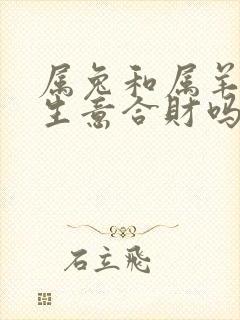 属兔和属羊
生意合財吗
石立飛